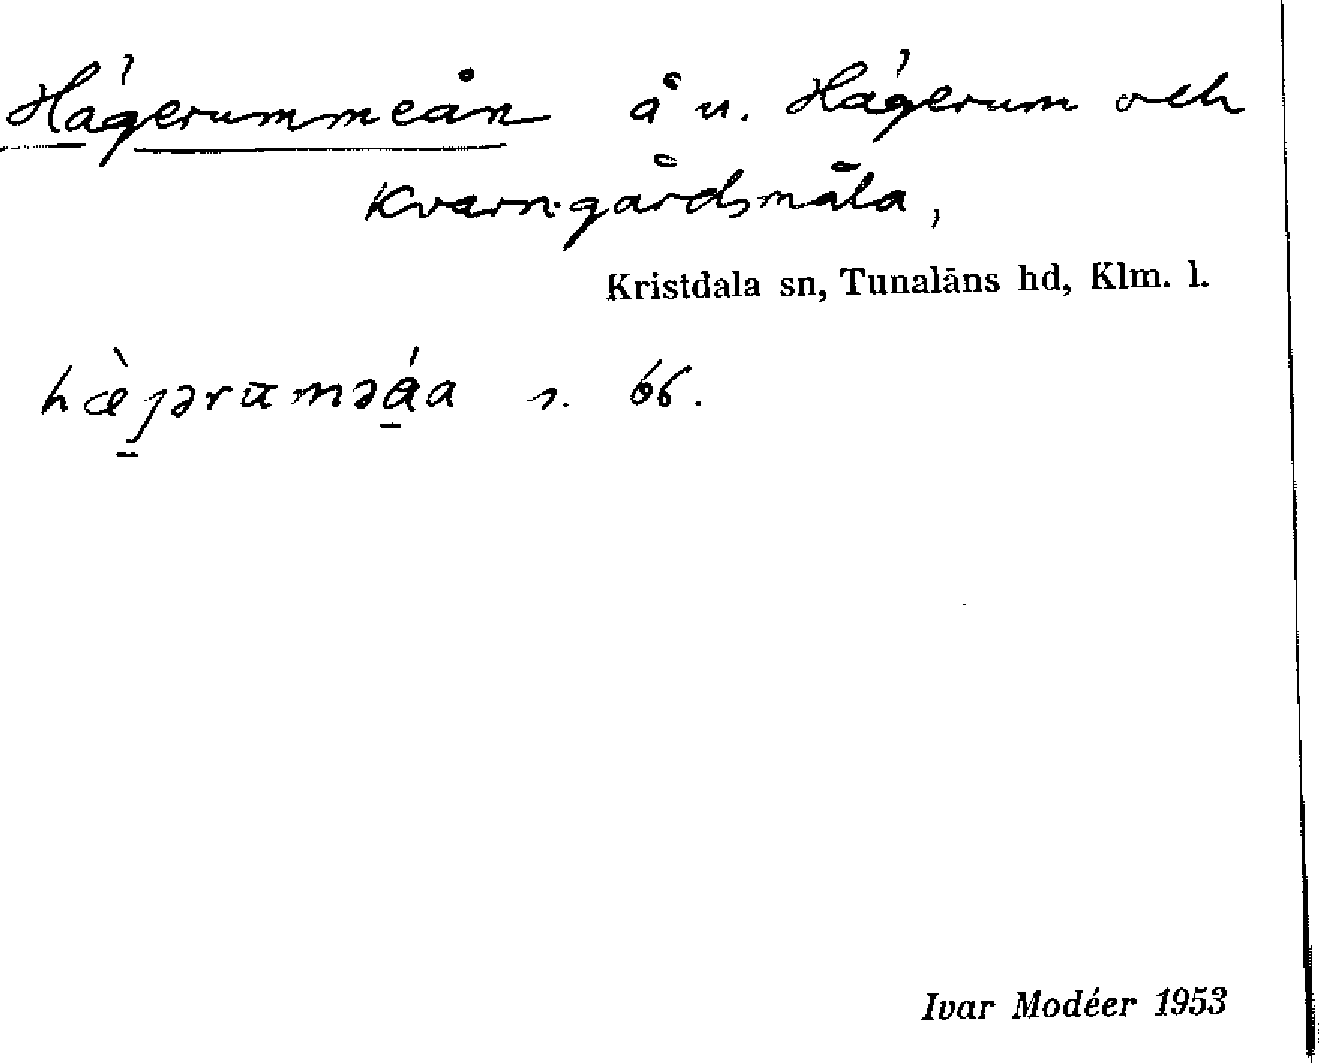 Hägerummeån å u. Hägerum och
Kvarngårdsmåla,
Kristdala sn, Tunaläns hd, Klm. l.
s. 66.
Ivar Modéer 1953